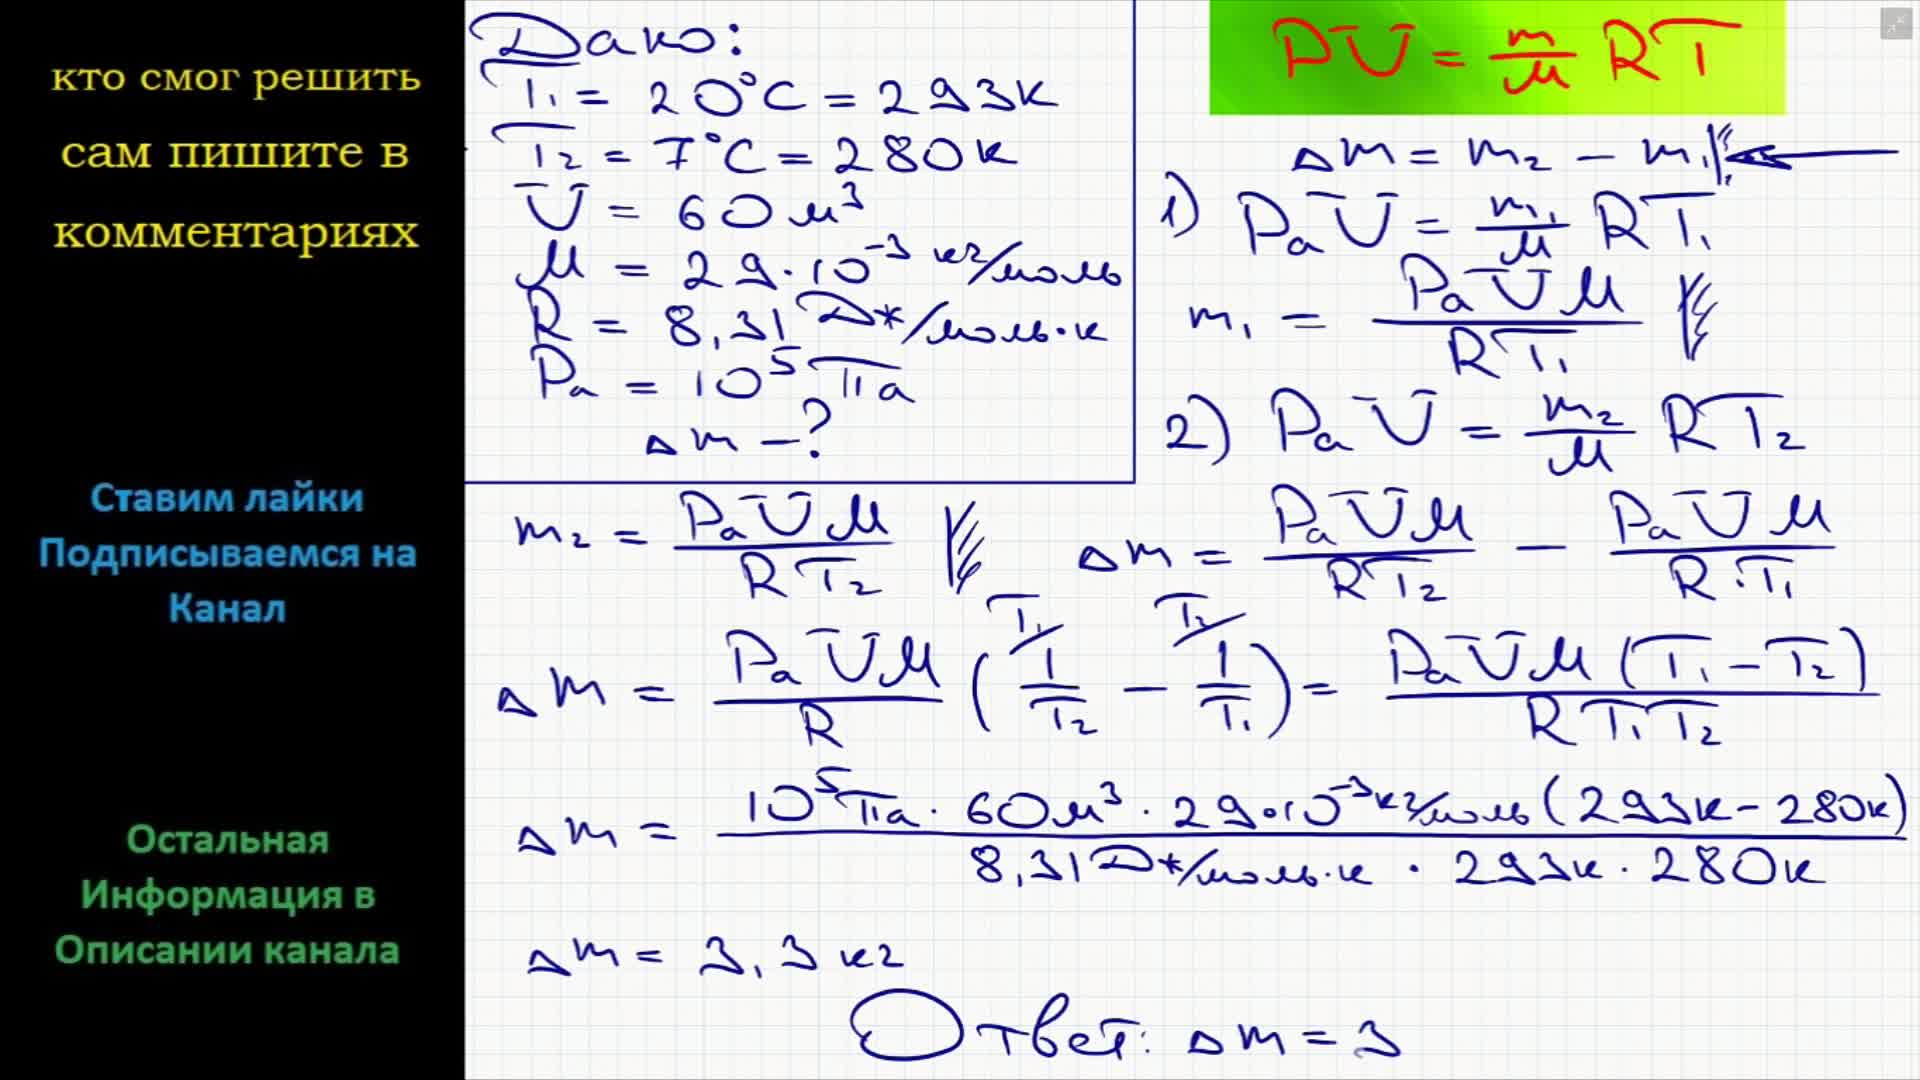 кто смог решить
сам пишите в
комментариях
Ставим лайки
Подписываемся на
Канал
Остальная
Информация в
Описании канала
Дано:
T₁ = 20°C = 293к
T₂ = 7°C = 280к
V = 60 м³
M = 29·10⁻³ кг/моль
R = 8,31 Дж/моль·к
Pa = 10⁵ Па
Δm – ?
PV = m/M RT
Δm = m₂ – m₁
1) PaV = m₁/M RT₁
m₁ = PaVM/RT₁
2) PaV = m₂/M RT₂
m₂ = PaVM/RT₂
Δm = PaVM/RT₂ – PaVM/R·T₁
T₁ T₂
Δm = PaVM/R (1/T₂ – 1/T₁) = PaVM(T₁–T₂)/RT₁T₂
Δm = 10⁵Па · 60м³ · 29·10⁻³кг/моль (293к – 280к)/8,31Дж/моль·к · 293к · 280к
Δm = 3,3 кг
Ответ: Δm = 3